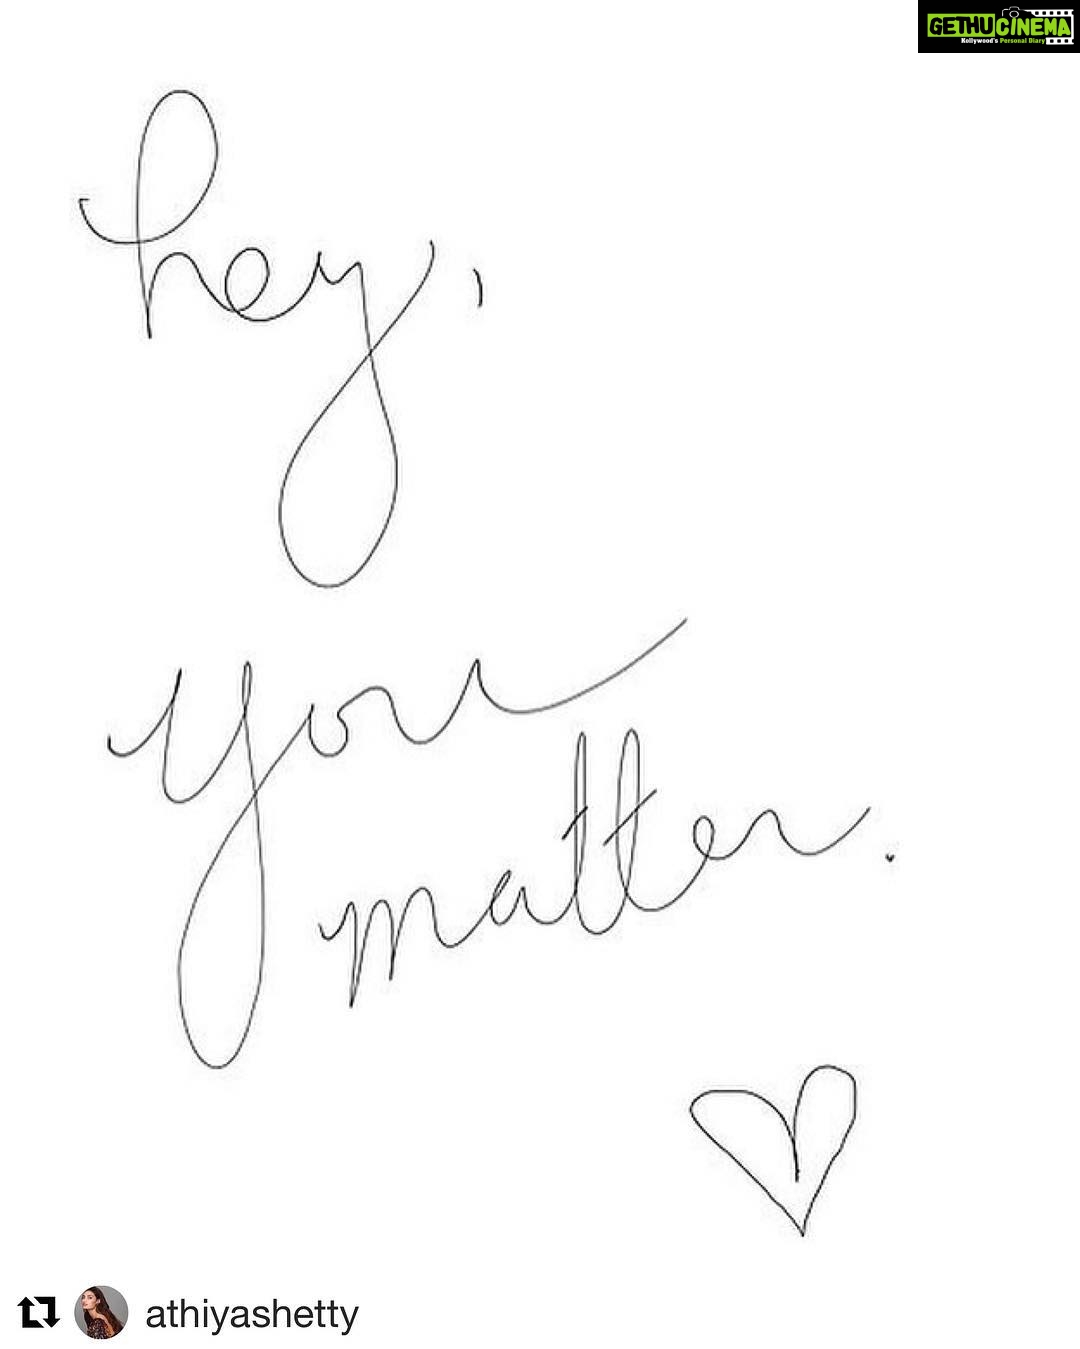 GETHUCINEMA
Kollywood's Personal Diary
hey,
you
matter.
athiyashetty